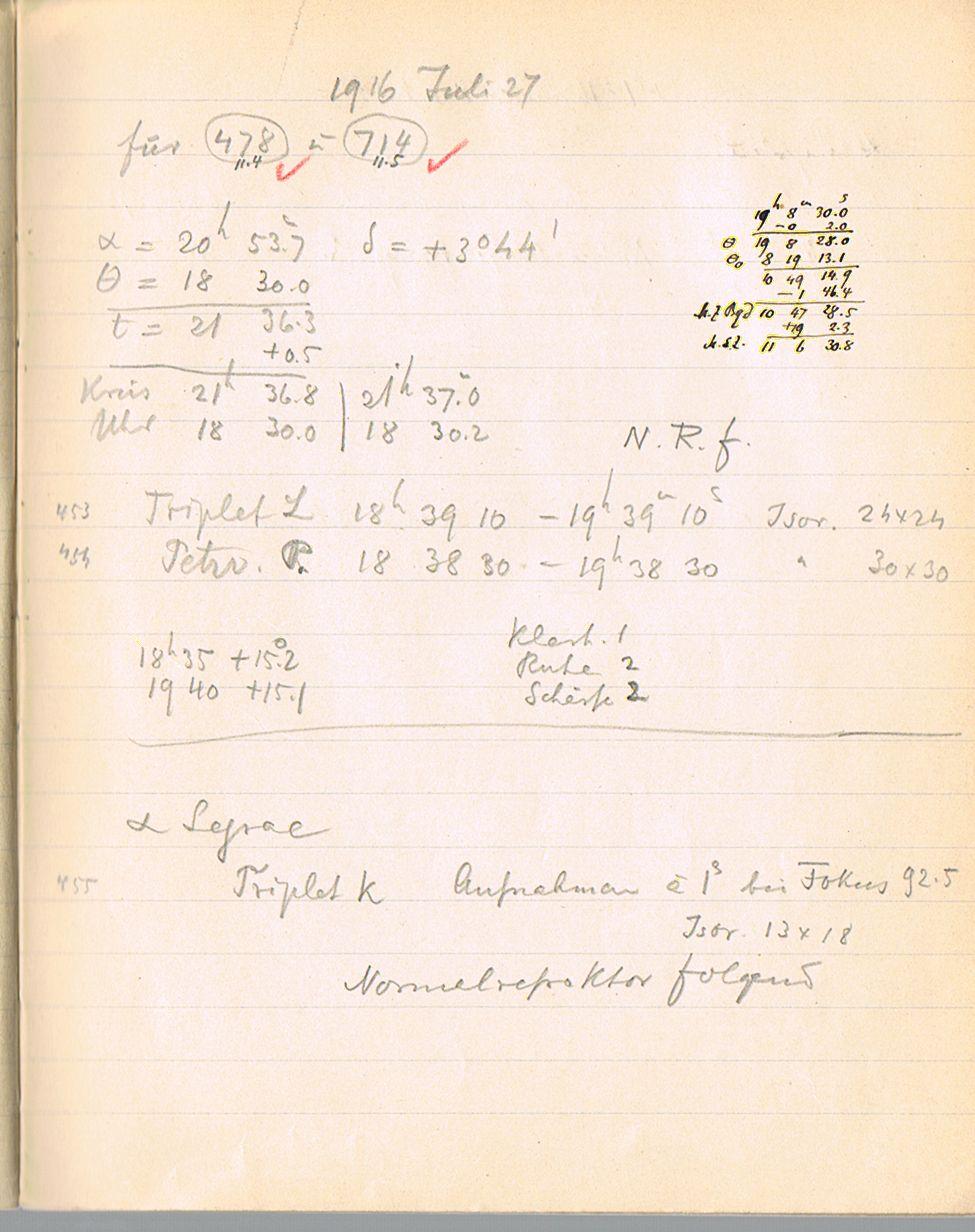 1916 Juli 27
für 478 u 714
11.4 11.5
19h 8m 30.0s
-0 2.0
θ 19 8 28.0
θ0 8 19 13.1
10 49 14.9
-1 46.4
M.Z. Bgd 10 47 28.5
+19 2.3
11 6 30.8
α = 20h 53.m7 δ = +3°44'
θ = 18 30.0
t = 21 36.3
+0.5
Kreis 21h 36.8 | 21h 37.m0
Uhr 18 30.0 | 18 30.2
N. R. f.
453 Triplet L 18h 39 10 - 19h 39m 10s Isor. 24x24
454 Petzv. P. 18 38 30 - 19h 38 30 " 30x30
18h 35 +15.°2
19 40 +15.1
Klarh. 1
Ruhe 2
Schärfe 2
α Lyrae
455 Triplet K Aufnahmen à 1s bei Fokus 92.5
Isor. 13x18
Normalrefraktor folgend